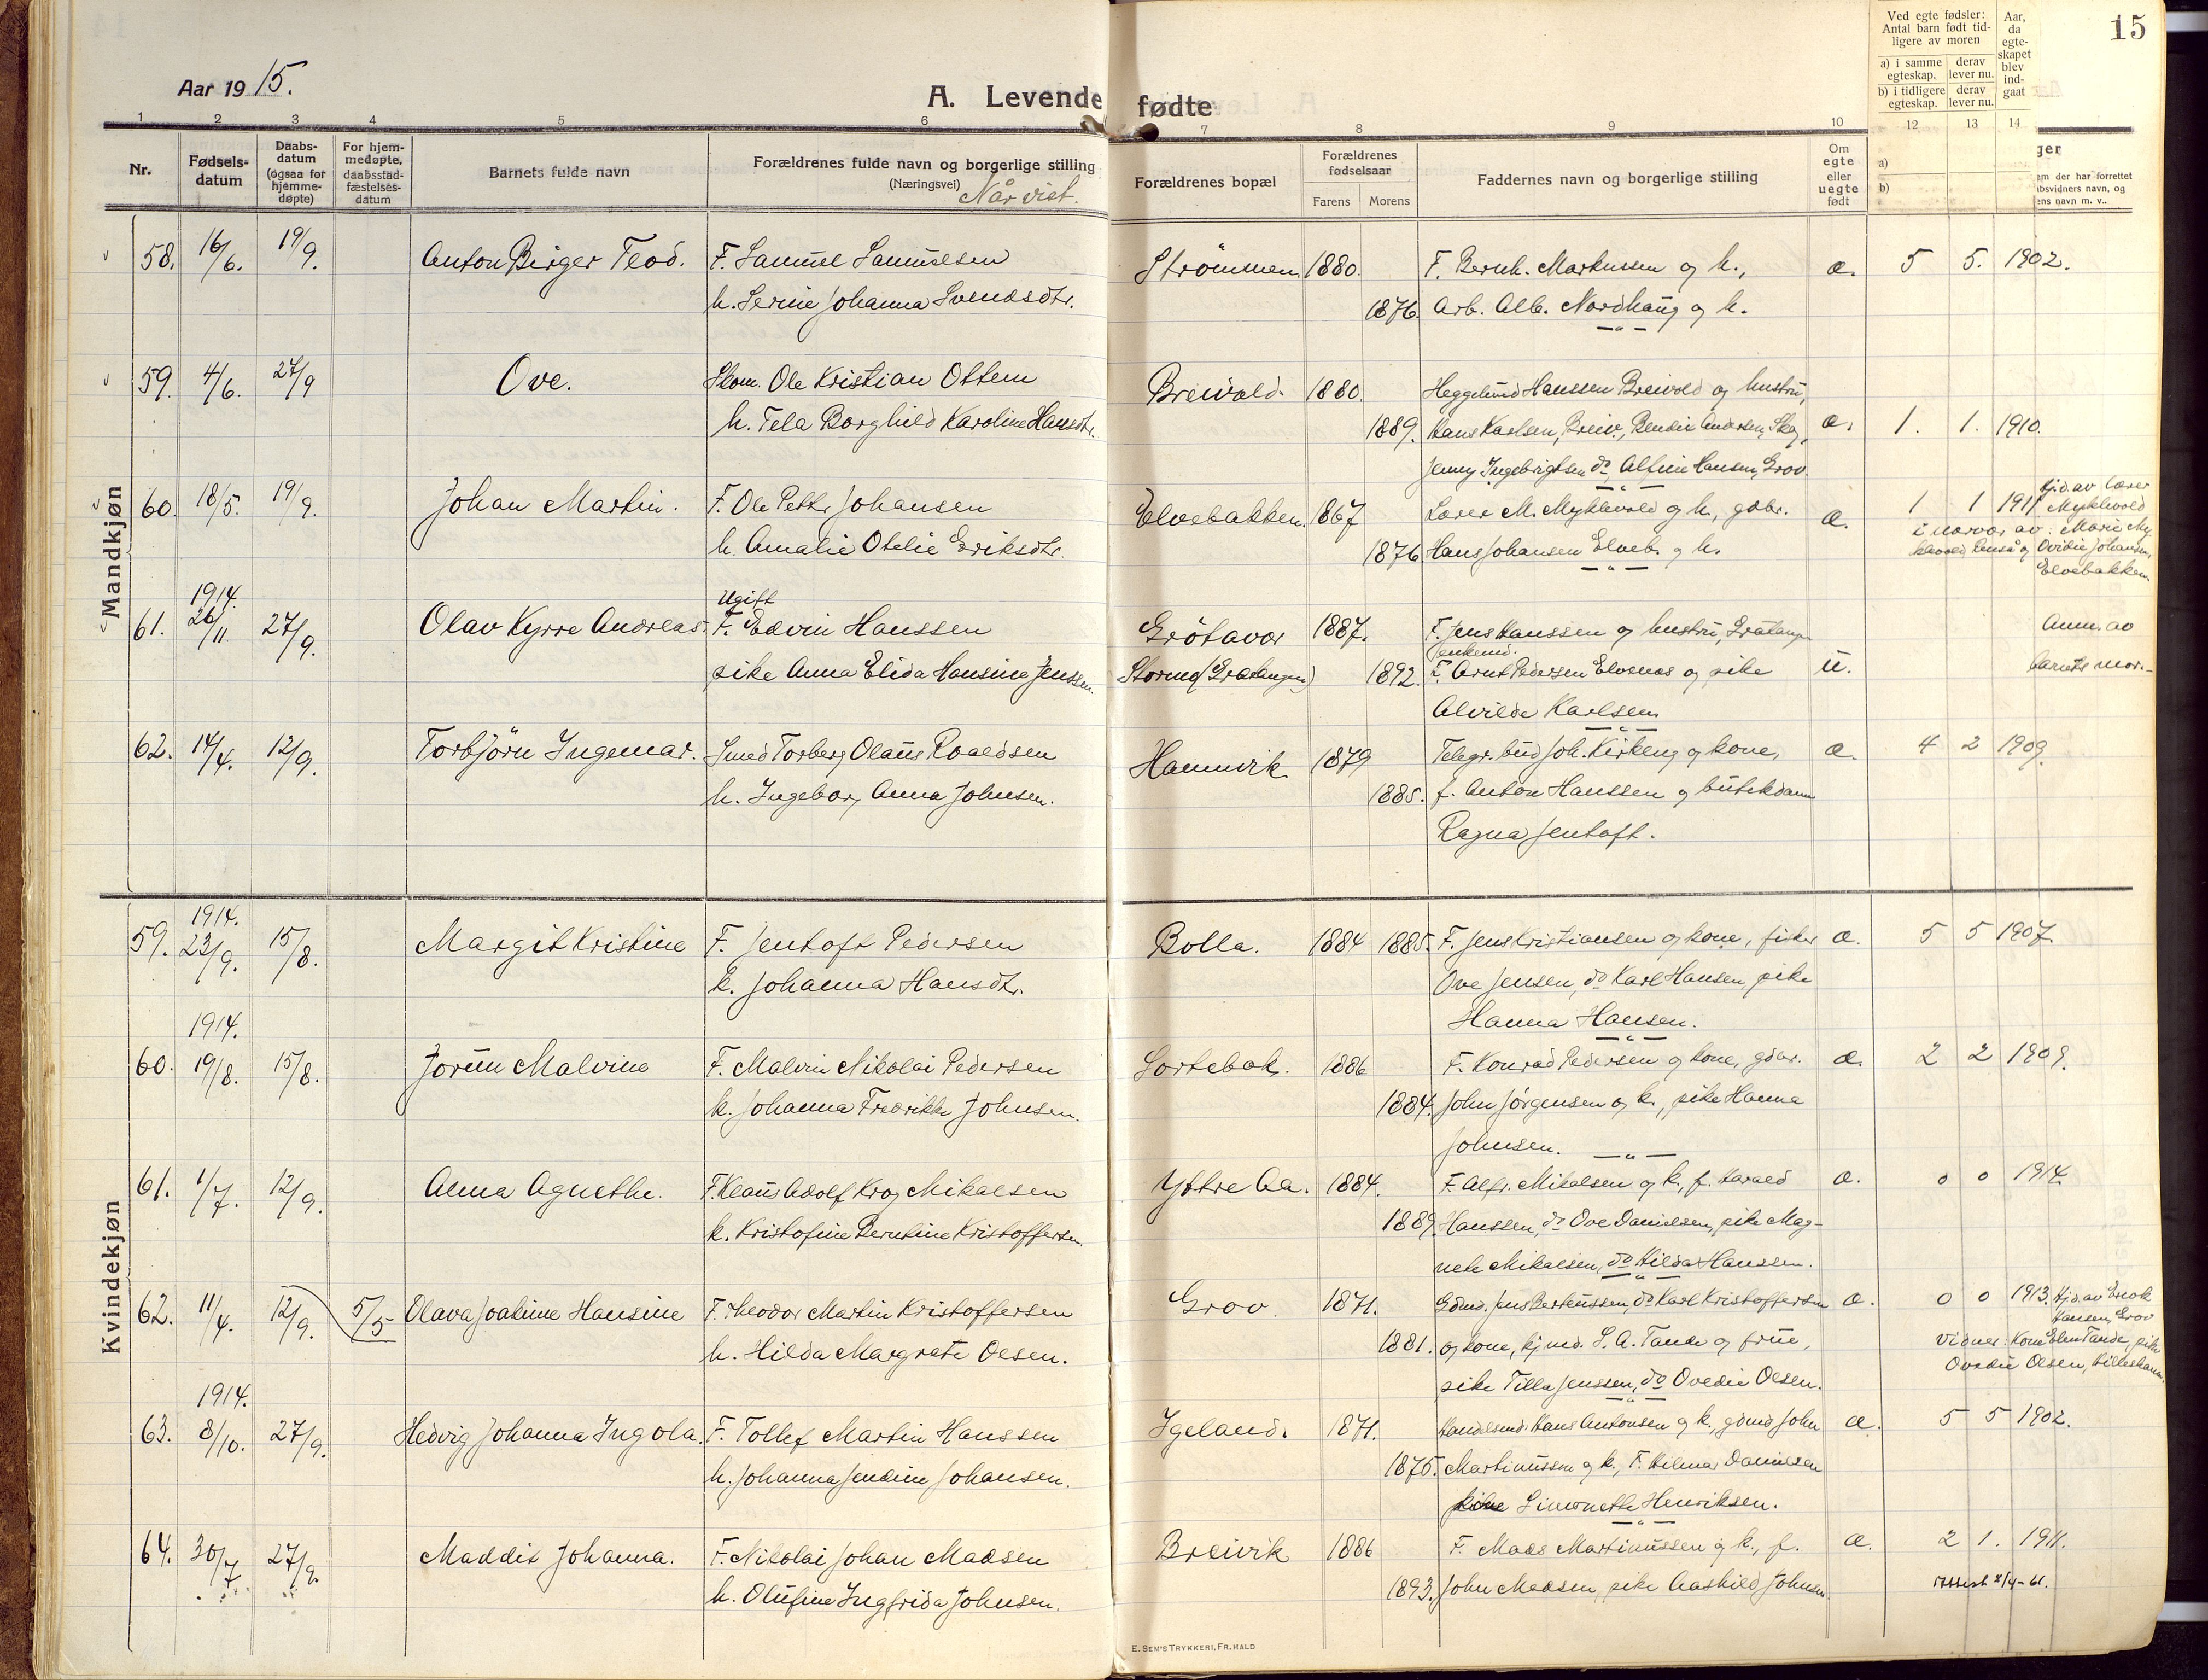 Aar 1915.
A. Levende fødte
15
1 2 3 4 5 6 7 8 9 10 12 13 14
Nr.
Fødsels-datum
Daabs-datum (ogsaa for hjemme-døpte)
For hjem-medøpte, daabsstad-fæstelses-datum
Barnets fulde navn
Forældrenes fulde navn og borgerlige stilling
(Næringsvei) Når viet.
Forældrenes bopæl
Forældrenes fødselsaar
Farens Morens
Faddernes navn og borgerlige stilling
Om egte eller uegte født
Ved egte fødsler: Antal barn født tidligere av moren
a) i samme egteskap. derav lever nu.
b) i tidligere egteskap. derav lever nu.
Aar, da egteskapet blev indgaat
a)
b)
ger
em der har forrettet
absvidners navn, og
ens navn m. v..
Mandkjøn
58. 16/6. 19/9. Anton Birger Teod. F. Samuel Samuelsen Strømmen. 1880. F. Bernh. Markussen og h., æ. 5 5. 1902.
h. Serine Johanna Svendsdtr. 1876. Arb. Alb. Nordhaug og h.
59. 4/6. 27/9 Ove. Skom. Ole Kristian Ottem Breivold. 1880. Heggelund Hanssen Breivold og hustru,
h. Tela Borghild Karoline Hansdtr. 1889. Hans Karlsen, Breiv., Bendix Andersen, Skog, æ. 1. 1. 1910.
Jenny Ingebrigtsen do Alfine Hansen, Grov.
60. 18/5. 19/9. Johan Martin. F. Ole Petter Johansen Elvebakken. 1867 Lærer M. Myklevold og h., gdbr. æ. 1 1 1911 Hjd. av lærer
Myklevold
h. Amalie Otelie Eriksdtr. 1876 Hans Johansen Elveb. og h. i nærvær av: Marie My-
klevold, Renså og Ovidie Johansen,
Elvebakken.
1914. Ugift
61. 26/11. 27/9. Olav Kyrre Andreas. F. Edvin Hanssen Grötavær 1887. F. Jens Hanssen og hustru, Gratangen Anm. av
enkemd.
pike Anna Elida Hansine Jenssen. Stornes (Gratangen) 1892. F. Arnt Pedersen Elvenæs og pike u. barnets mor.
Alvilde Karlsen
62. 14/4. 12/9. Torbjörn Ingemar. Smed Torberg Olaus Roaldsen Hamnvik 1879 Telegr.bud Joh. Kirkeng og kone, æ. 4 2 1909.
h. Ingeborg Anna Johnsen. 1885. f. Anton Hanssen og butikdame
Ragna Jentoft.
Kvindekjøn
1914.
59. 23/9. 15/8. Margit Kristine F. Jentoft Pedersen Bolla. 1884 1885. F. Jens Kristiansen og kone, fisker æ. 5 5 1907.
k. Johanna Hansdtr. Ove Jensen, do Karl Hansen, pike
Hanna Hansen.
1914.
60. 19/8. 15/8. Jorun Malvine F. Malvin Nikolai Pedersen Sortebak. 1886 F. Konrad Pedersen og kone, gdbr. æ. 2 2 1909.
k. Johanna Fredrikke Johnsen. 1884. John Jörgensen og k., pike Hanna
Johnsen.
61. 1/7. 12/9. Alma Agnethe. F. Klaus Adolf Krog Mikalsen Yttre Aa. 1884. F. Alfr. Mikalsen og k., f. Harald æ. 0 0 1914.
k. Kristofine Berntine Kristoffersen. 1889. Hanssen, do Ove Danielsen, pike Mag-
nete Mikalsen, do Hilda Hanssen.
62. 11/4. 12/9. 5/5 Olava Joakime Hansine F. Theodor Martin Kristoffersen Grov. 1871. Gdmd. Jens Berteussen, do Karl Kristoffersen æ. 0 0 1913. Hjd. av Enok
Hansen, Grov
h. Hilda Margrete Olsen. 1881. og kone, kjmd. S. A. Tande og frue, Vidner: Kone Elen Tande, pike
pike Tilla Jenssen, do Ovedie Olsen. Ovedie Olsen, Hilleshamn.
1914.
63. 8/10. 27/9. Hedvig Johanna Ingola. F. Tollef Martin Hanssen Igeland. 1871. Handelsmd. Hans Antonsen og k., gdmd John æ. 5 5 1902.
h. Johanna Jendine Johansen. 1875. Martinussen og k., F. Hilmar Danielsen
pike Simonette Henriksen.
64. 30/7 27/9. Maddit Johanna. F. Nikolai Johan Madsen Breivik 1886 F. Mads Martinussen og k., f. æ. 2 1. 1911.
h. Olufine Ingfrida Johnsen. 1893. John Madsen, pike Aashild Johnsen. attest 8/4-61.
E. SEM'S TRYKKERI, FR. HALD